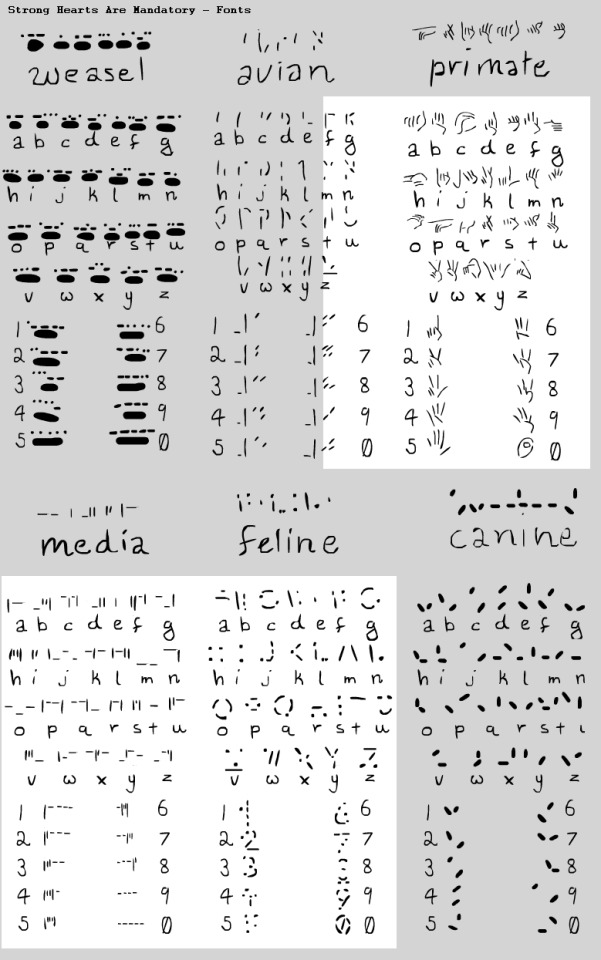 Strong Hearts Are Mandatory - Fonts
weasel
a b c d e f g
h i j k l m n
o p q r s t u
v w x y z
1 6
2 7
3 8
4 9
5 0
avian
a b c d e f g
h i j k l m n
o p q r s t u
v w x y z
1 6
2 7
3 8
4 9
5 0
primate
a b c d e f g
h i j k l m n
o p q r s t u
v w x y z
1 6
2 7
3 8
4 9
5 0
media
a b c d e f g
h i j k l m n
o p q r s t u
v w x y z
1 6
2 7
3 8
4 9
5 0
feline
a b c d e f g
h i j k l m n
o p q r s t u
v w x y z
1 6
2 7
3 8
4 9
5 0
canine
a b c d e f g
h i j k l m n
o p q r s t
v w x y z
1 6
2 7
3 8
4 9
5 0